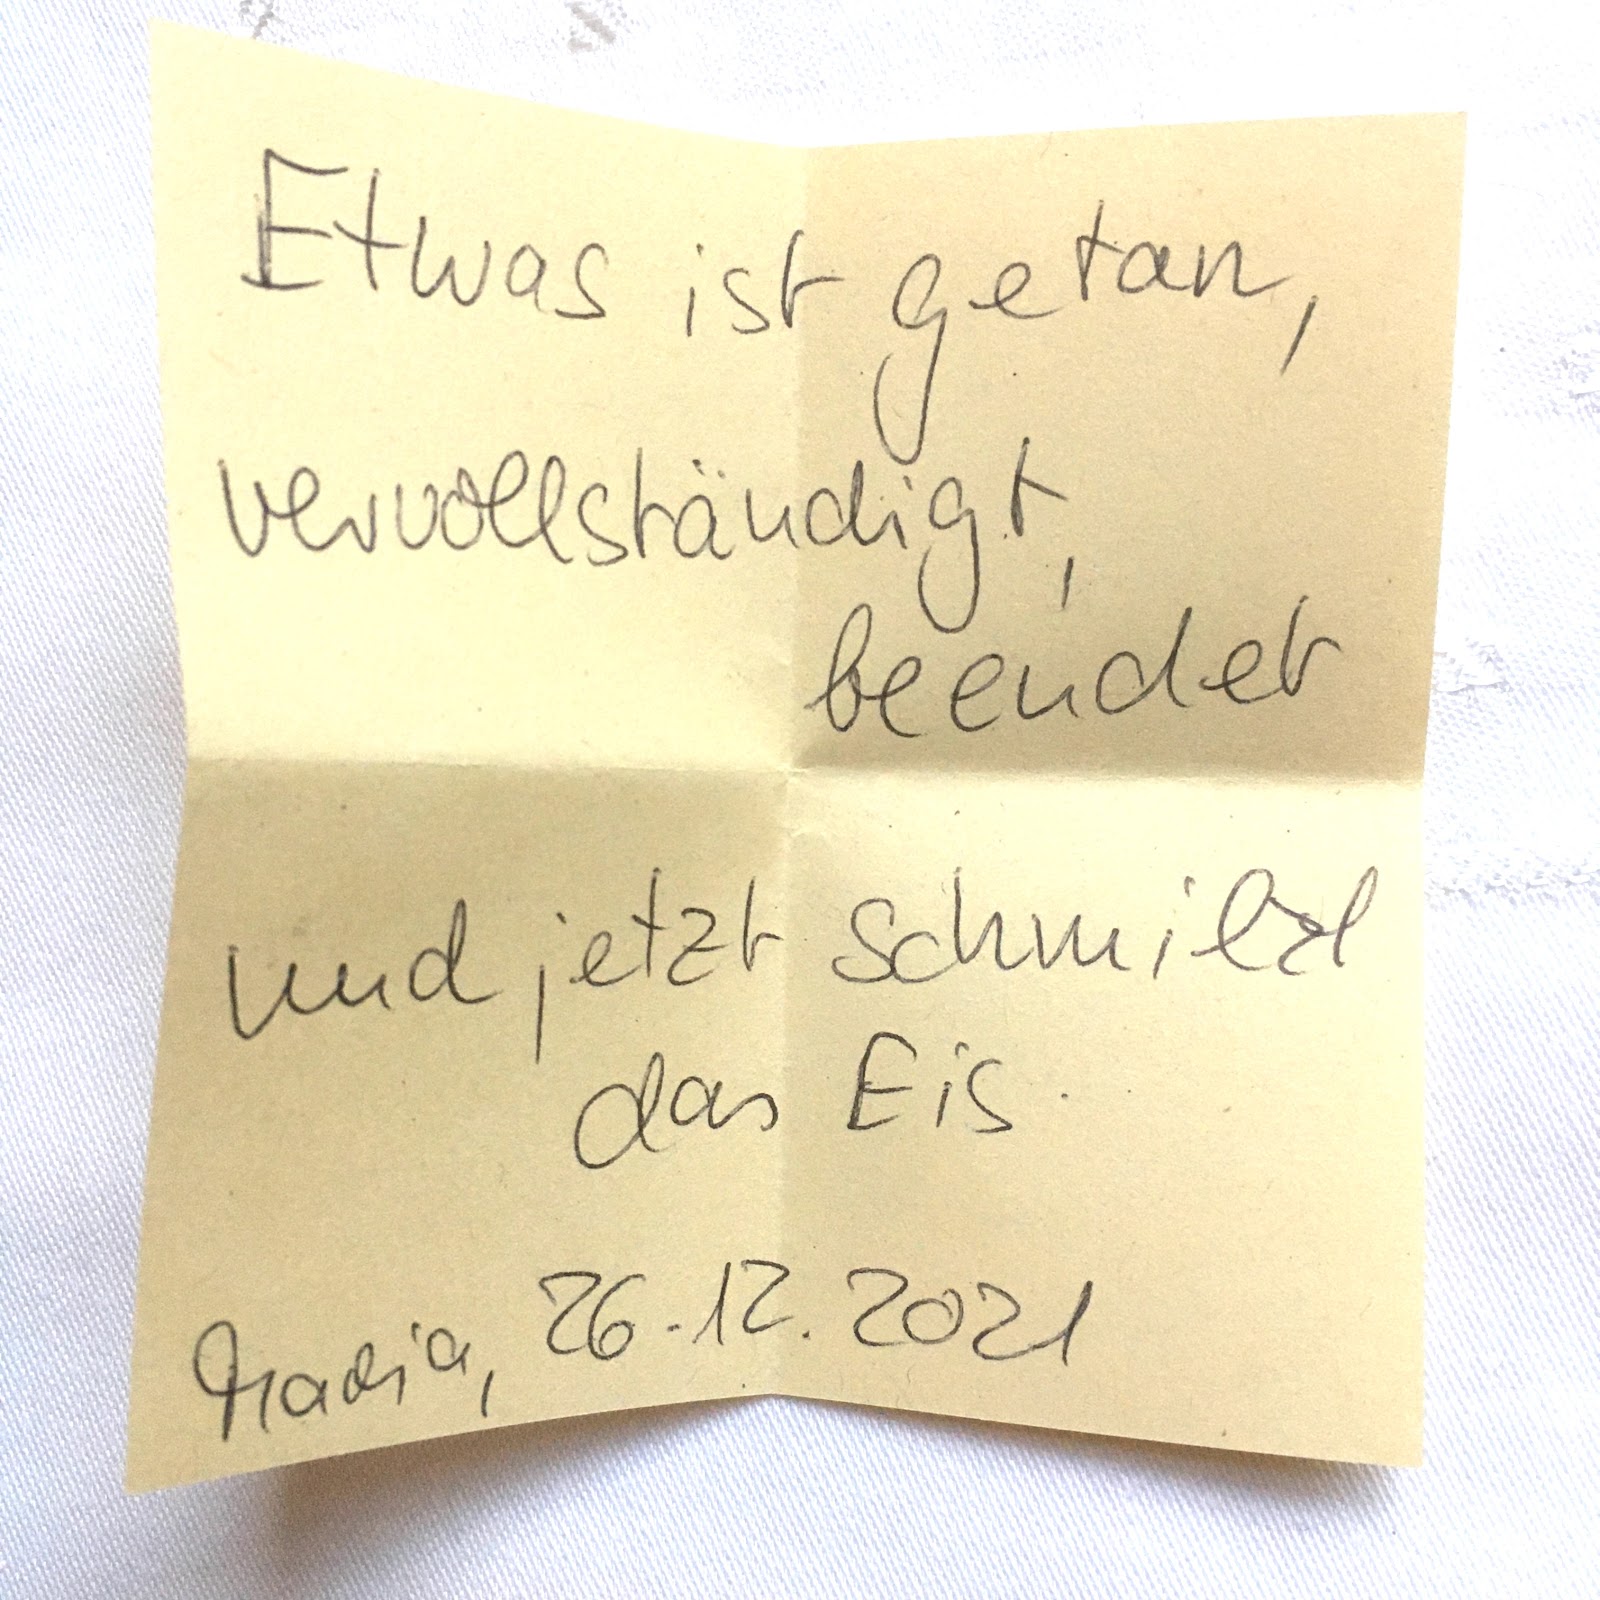 Etwas ist getan,
vervollständigt,
beendet
und jetzt schmilzt
das Eis.
Nadia, 26.12.2021